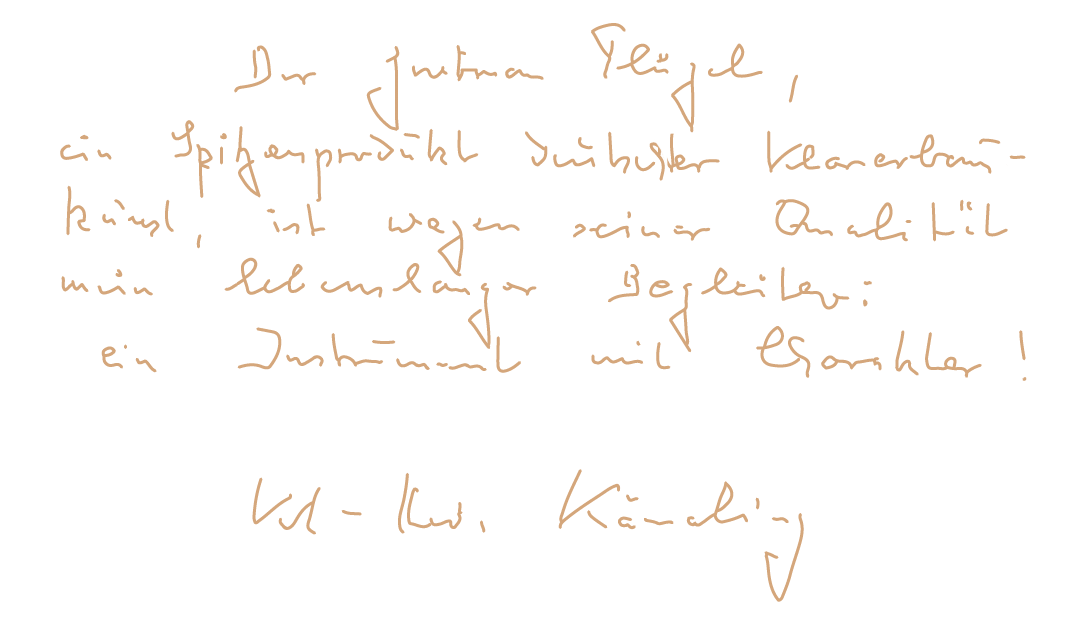 Der Grotrian Flügel,
ein Spitzenprodukt deutscher Klavierbau-
kunst, ist wegen seiner Qualität
mein lebenslanger Begleiter:
ein Instrument mit Charakter!
Kämmerling